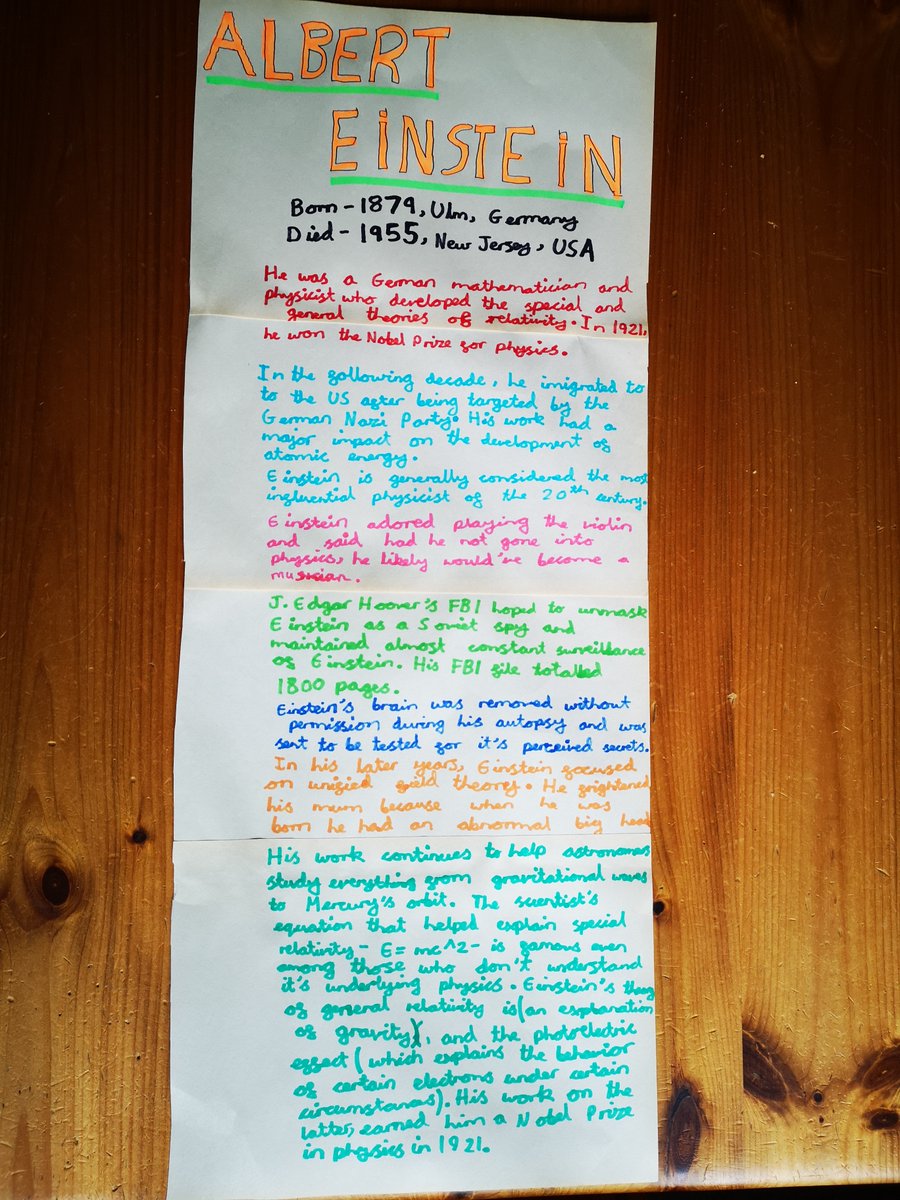 ALBERT
EINSTEIN
Born - 1879, Ulm, Germany
Died - 1955, New Jersey, USA
He was a German mathematician and
physicist who developed the special and
general theories of relativity. In 1921,
he won the Nobel Prize for physics.
In the following decade, he imigrated to
to the US after being targeted by the
German Nazi Party. His work had a
major impact on the development of
atomic energy.
Einstein is generally considered the most
influential physicist of the 20th century.
Einstein adored playing the violin
and said had he not gone into
physics, he likely would've become a
musician.
J. Edgar Hoover's FBI hoped to unmask
Einstein as a Soviet spy and
maintained almost constant surveillance
of Einstein. His FBI file totalled
1800 pages.
Einstein's brain was removed without
permission during his autopsy and was
sent to be tested for it's perceived secrets.
In his later years, Einstein focused
on unified field theory. He frightened
his mum because when he was
born he had an abnormal big head
His work continues to help astronomers
study everything from gravitational waves
to Mercury's orbit. The scientist's
equation that helped explain special
relativity - E= mc^2 - is famous even
among those who don't understand
it's underlying physics. Einstein's theory
of general relativity is (an explanation
of gravity), and the photoelectric
effect (which explains the behavior
of certain electrons under certain
circumstances). His work on the
latter, earned him a Nobel Prize
in physics in 1921.